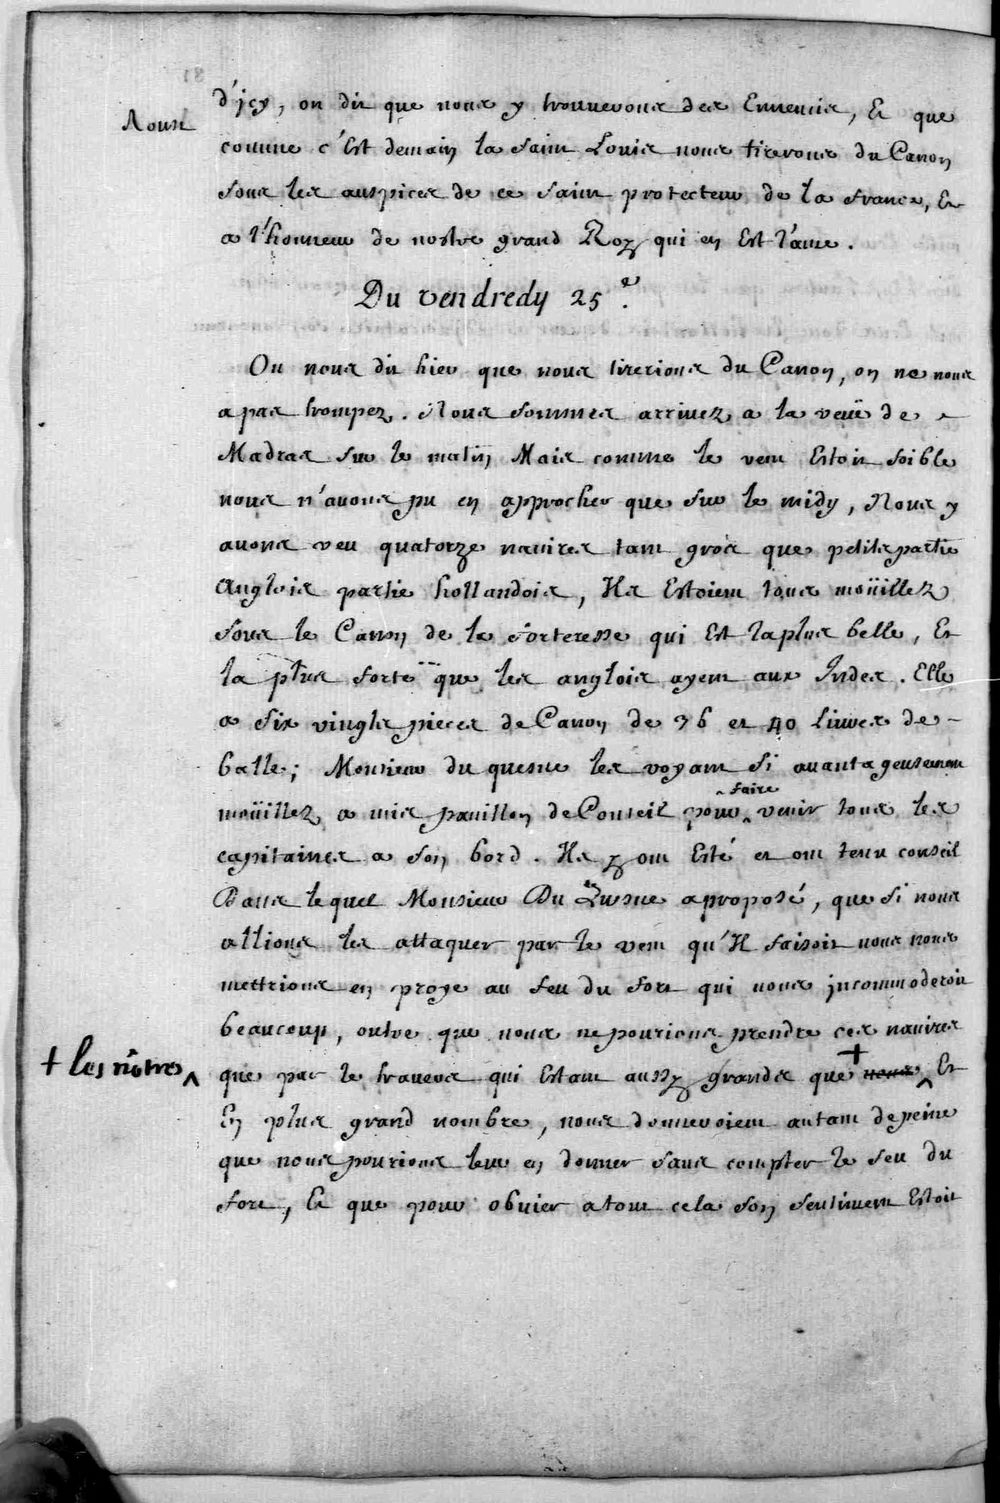 Aoust
d'jcy, on dit que nous y trouuerons des Ennemis, Et que
comme c'Est demain la saint Louis nous tirerons du Canon
sous les auspices de ce saint protecteur de la france, Et
a l'honneur de nostre grand Roy qui en Est l'ame.
Du vendredy 25e.
On nous dit hier que nous tirerions du Canon, on ne nous
a pas trompez. Nous sommes arriuez a la veüe de
Madras sur le matin Mais comme le vent Estoit foible
nous n'auons pu en approcher que sur le midy, Nous y
auons veu quatorze nauires tant gros que petits partie
Anglois partie hollandois, Ils Estoient tous moüillez
sous le Canon de la forteresse qui Est la plus belle, Et
la plus forte que les anglois ayent aux Indes. Elle
a six vingts pieces de Canon de 36 et 40 liures de
balle; Monsieur du quesne les voyant si auantageusement
moüillez a mis pauillon de Conseil pour ^faire venir tous les
capitaines a son bord. Ils y ont Esté et ont tenu conseil
Dans lequel Monsieur Du Quesne a proposé, que si nous
allions les attaquer par le vent qu'Il faisoit nous nous
mettrions en proye au feu du fort qui nous jncommoderoit
beaucoup, outre que nous ne pourions prendre ces nauires
+ les nôtres ^
que par le trauers qui Estant aussy grands que nous +^ Et
En plus grand nombre, nous donneroient autant de peine
que nous pourions leur en donner sans compter le feu du
fort, Et que pour obuier a tout cela son sentiment Estoit